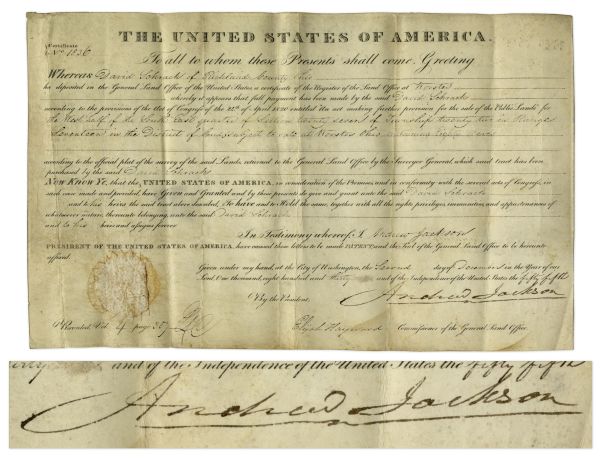 THE UNITED STATES OF AMERICA.
Certificate
No. 1836
To all to whom these Presents shall come, Greeting
Whereas David Schrack of Richland County Ohio
has deposited in the General Land Office of the United States a certificate of the Register of the Land Office at Wooster
whereby it appears that full payment has been made by the said David Schrack
according to the provisions of the Act of Congress of the 24th of April 1820 entitled An act making further provision for the sale of the Public Lands for
the West half of the South East quarter of Section twenty seven of Township twenty two in Range
Seventeen in the District of lands subject to sale at Wooster Ohio containing eighty acres
according to the official plat of the survey of the said Lands, returned to the General Land Office by the Surveyor General, which said tract has been
purchased by the said David Schrack
Now Know Ye, that the UNITED STATES OF AMERICA, in consideration of the Premises and in conformity with the several acts of Congress, in
said case made and provided, have Given and Granted and by these presents do give and grant unto the said David Schrack
and to his heirs the said tract above described, To have and to Hold the same, together with all the rights, privileges, immunities, and appurtenances of
whatsoever nature, thereunto belonging, unto the said David Schrack
and to his heirs and assigns forever
In Testimony whereof, I Andrew Jackson
PRESIDENT OF THE UNITED STATES OF AMERICA, have caused these letters to be made PATENT and the Seal of the General Land Office to be hereunto
affixed.
Given under my hand, at the City of Washington, the Second day of December in the Year of our
Lord One thousand, eight hundred and thirty and of the Independence of the United States the fifty fifth
By the President,
Andrew Jackson
Recorded, Vol. 4 page 357
Elijah Hayward Commissioner of the General Land Office.
and of the Independence of the United States the fifty fifth
Andrew Jackson